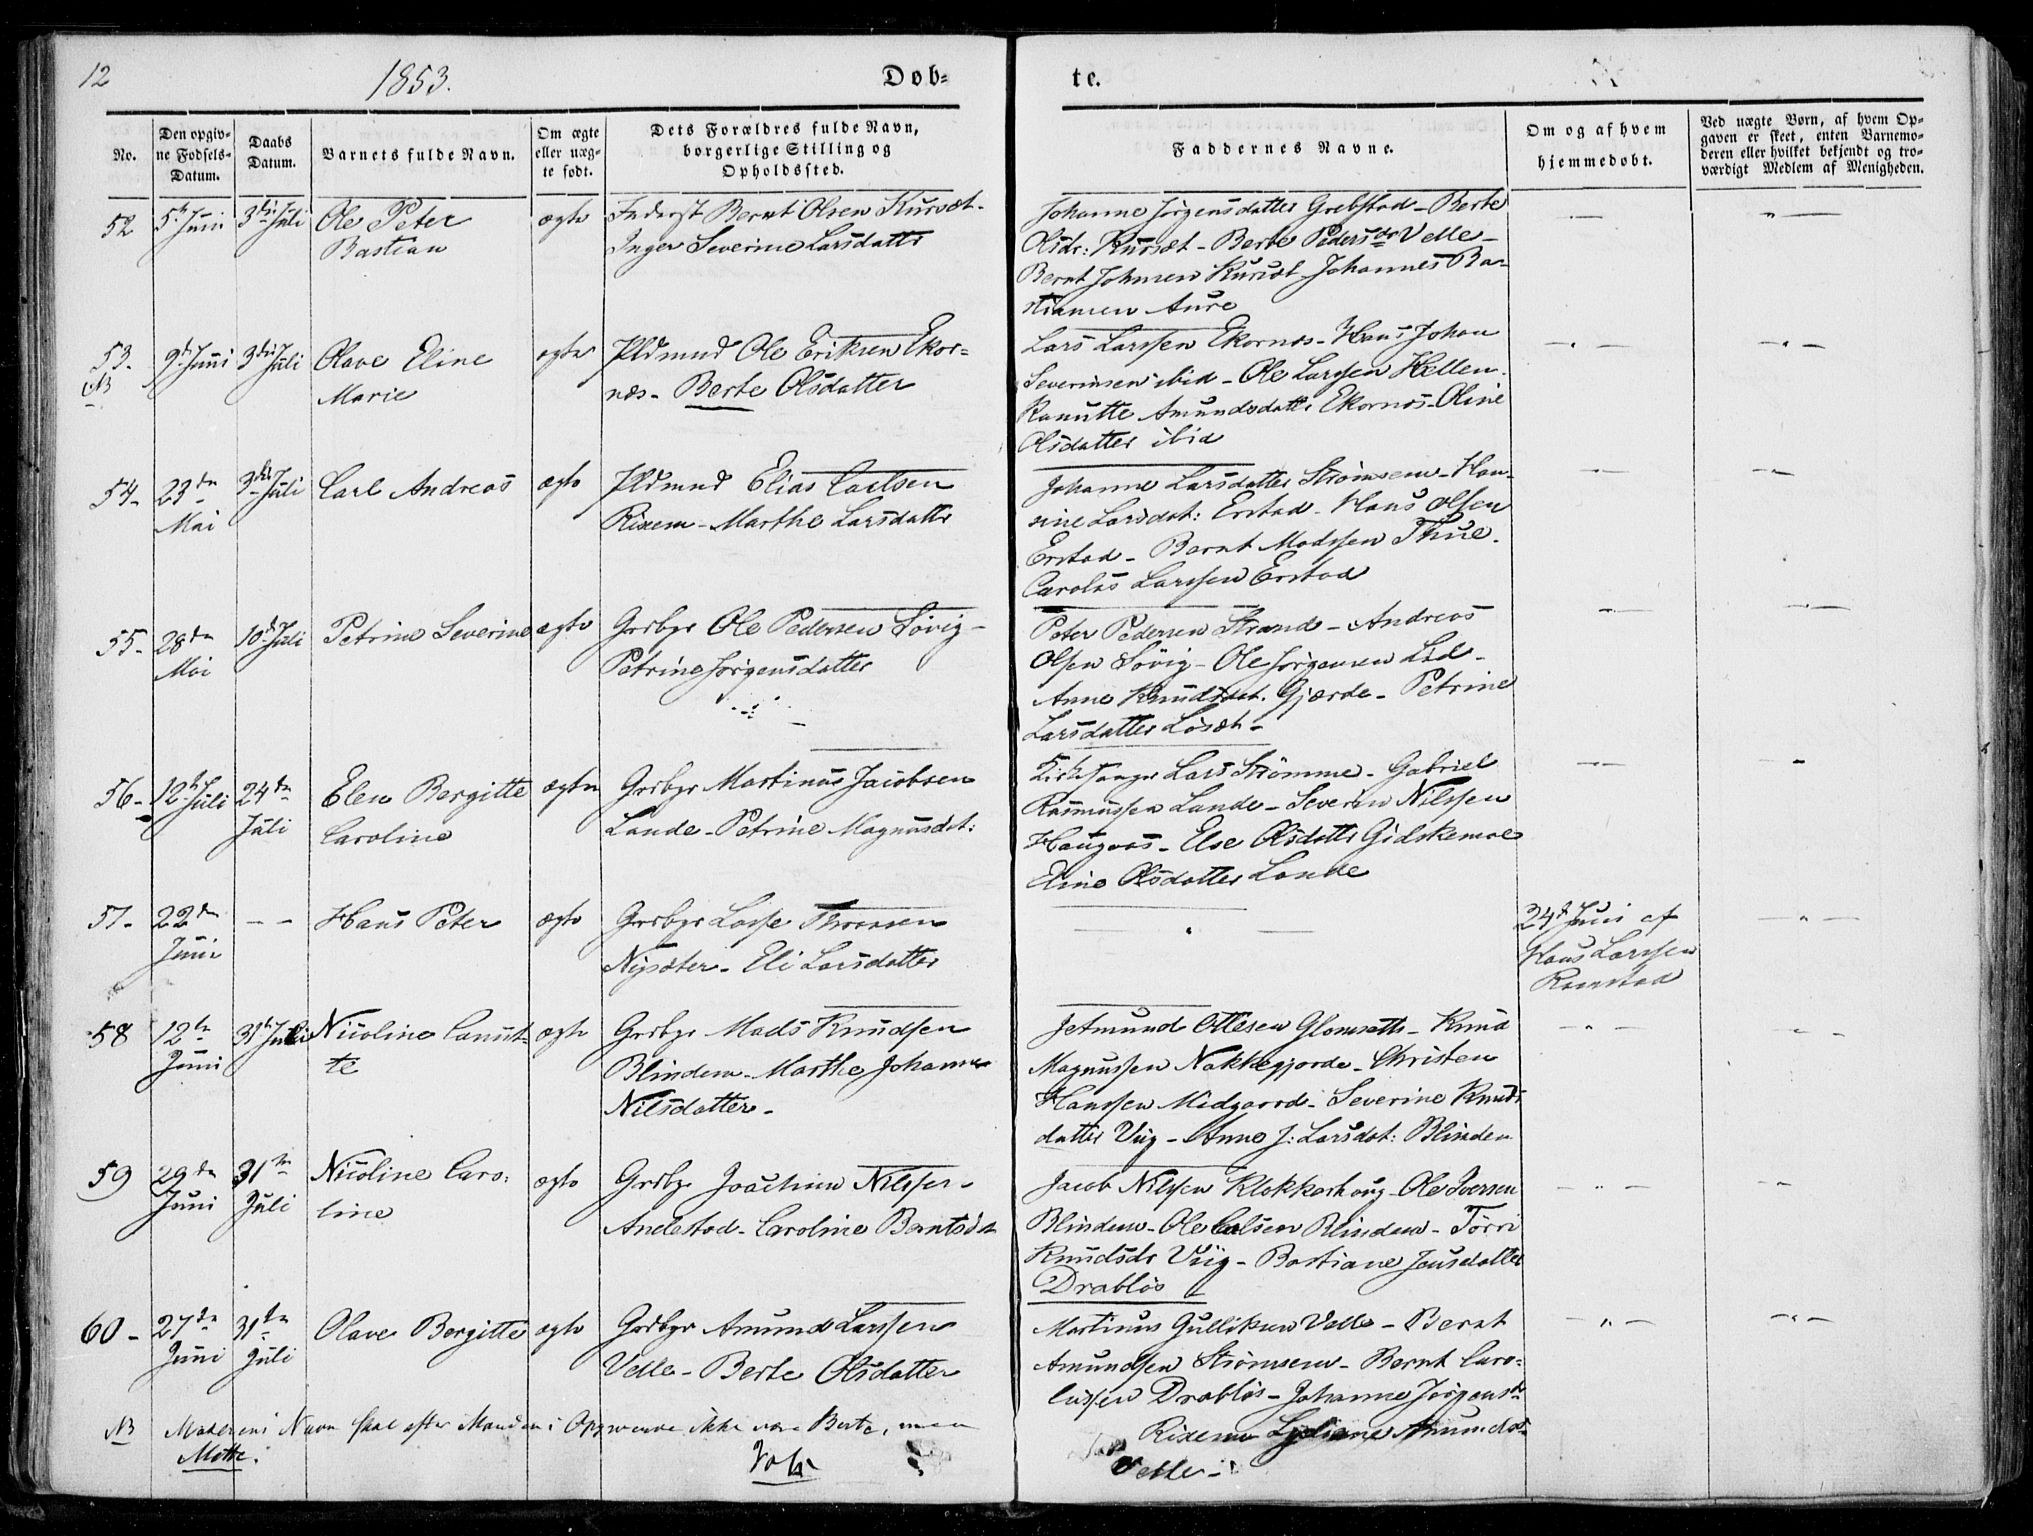 12
1853.
Døb-
te.
No.
Den opgiv-
ne Fødsels-
Datum.
Daabs
Datum.
Barnets fulde Navn.
Om ægte
eller uæg-
te født.
Dets Forældres fulde Navn,
borgerlige Stilling og
Opholdssted.
Faddernes Navne.
Om og af hvem
hjemmedøbt.
Ved uægte Børn, af hvem Op-
gaven er skeet, enten Barnemo-
deren eller hvilket bekjendt og tro-
værdigt Medlem af Menigheden.
52
5te Juni
3die Juli
Ole Peter
Bastian
ægte
Inderst Bernt Olsen Kursæt-
Inger Severine Larsdatter
Johanne Jørgensdatter Grebstad - Berte
Olsdr: Kursæt - Berte Pedersdr Velle -
Bernt Johnsen Kursæt - Johannes Ba-
stiansen Aure
53-
NB
9de Juni
3die Juli
Olave Eline
Marie
ægte
Pldmnd Ole Eriksen Ekor-
næs - Berte Olsdatter
Lars Larssen Ekornæs - Hans Johan
Severinsen ibid - Ole Larssen Hellen.
Ranutte Amundsdatter Ekornæs - Oline
Olsdatter ibid
54-
23de
Mai
3die Juli
Carl Andreas
ægte
Pldmnd Elias Carlsen
Rixem - Marthe Larsdatter
Johanne Larsdatter Strømsem - Han-
sine Larsdat: Erstad - Hans Olsen
Erstad - Bernt Madssen Thue.
Carolus Larssen Erstad
55-
28de
Mai
10de Juli
Petrine Severine
ægte
Grdbgr Ole Pedersen Søvig -
Petrine Jørgensdatter
Peter Pedersen Strand - Andreas
Olsen Søvig - Ole Jørgensen Lid -
Anne Knudsdat. Gjærde - Petrine
Larsdatter Løsæt -
56-
12te Juli
24de
Juli
Elen Bergitte
Caroline
ægte
Grdbgr Martinus Jacobsen
Lande - Petrine Magnusdat:
Kirkesanger Lars Strømme - Gabriel
Rasmussen Lande - Severin Nilssen
Haugnæs - Else Olsdatter Gidskemoe
Eline Olsdatter Lande
57-
22de
Juni
- -
Hans Peter
ægte
Grdbgr Lasse Thronsen
Nysæter - Eli Larsdatter
24de Juni af
Hans Larssen
Ramstad
58
12te
Juni
31te Juli
Nicoline Canut-
te
ægte
Grdbgr Mads Knudsen
Blindem - Marthe Johanne
Nilsdatter -
Jetmund Ottesen Glomsæth - Knud
Magnussen Nakkegjærde - Christen
Hanssen Midgaard - Severine Knuds-
datter Viig - Anne J: Larsdat: Blindem
59
29de
Juni
31te
Juli
Nicoline Caro-
line
ægte
Grdbgr Joachim Nilssen
Andestad - Caroline Berntsdat
Jacob Nilssen Klokkerhoug - Ole Iversen
Blindem - Ole Carlsen Blindem - Tørri
Knudsdr Viig - Bastiane Jensdatter
Drabløs
60-
27de
Juni
31te
Juli
Olave Bergitte
ægte
Grdbgr Amund Larssen
Velle - Berte Olsdatter
Martinus Gulliksen Velle - Bernt
Amundsen Strømsem - Bernt Caro-
lussen Drabløs - Johanne Jørgensdr
Rixem Amundsd
Velle -
NB Moderens Navn skal efter Mandens Opgivende ikke være Berte, men
Mette.